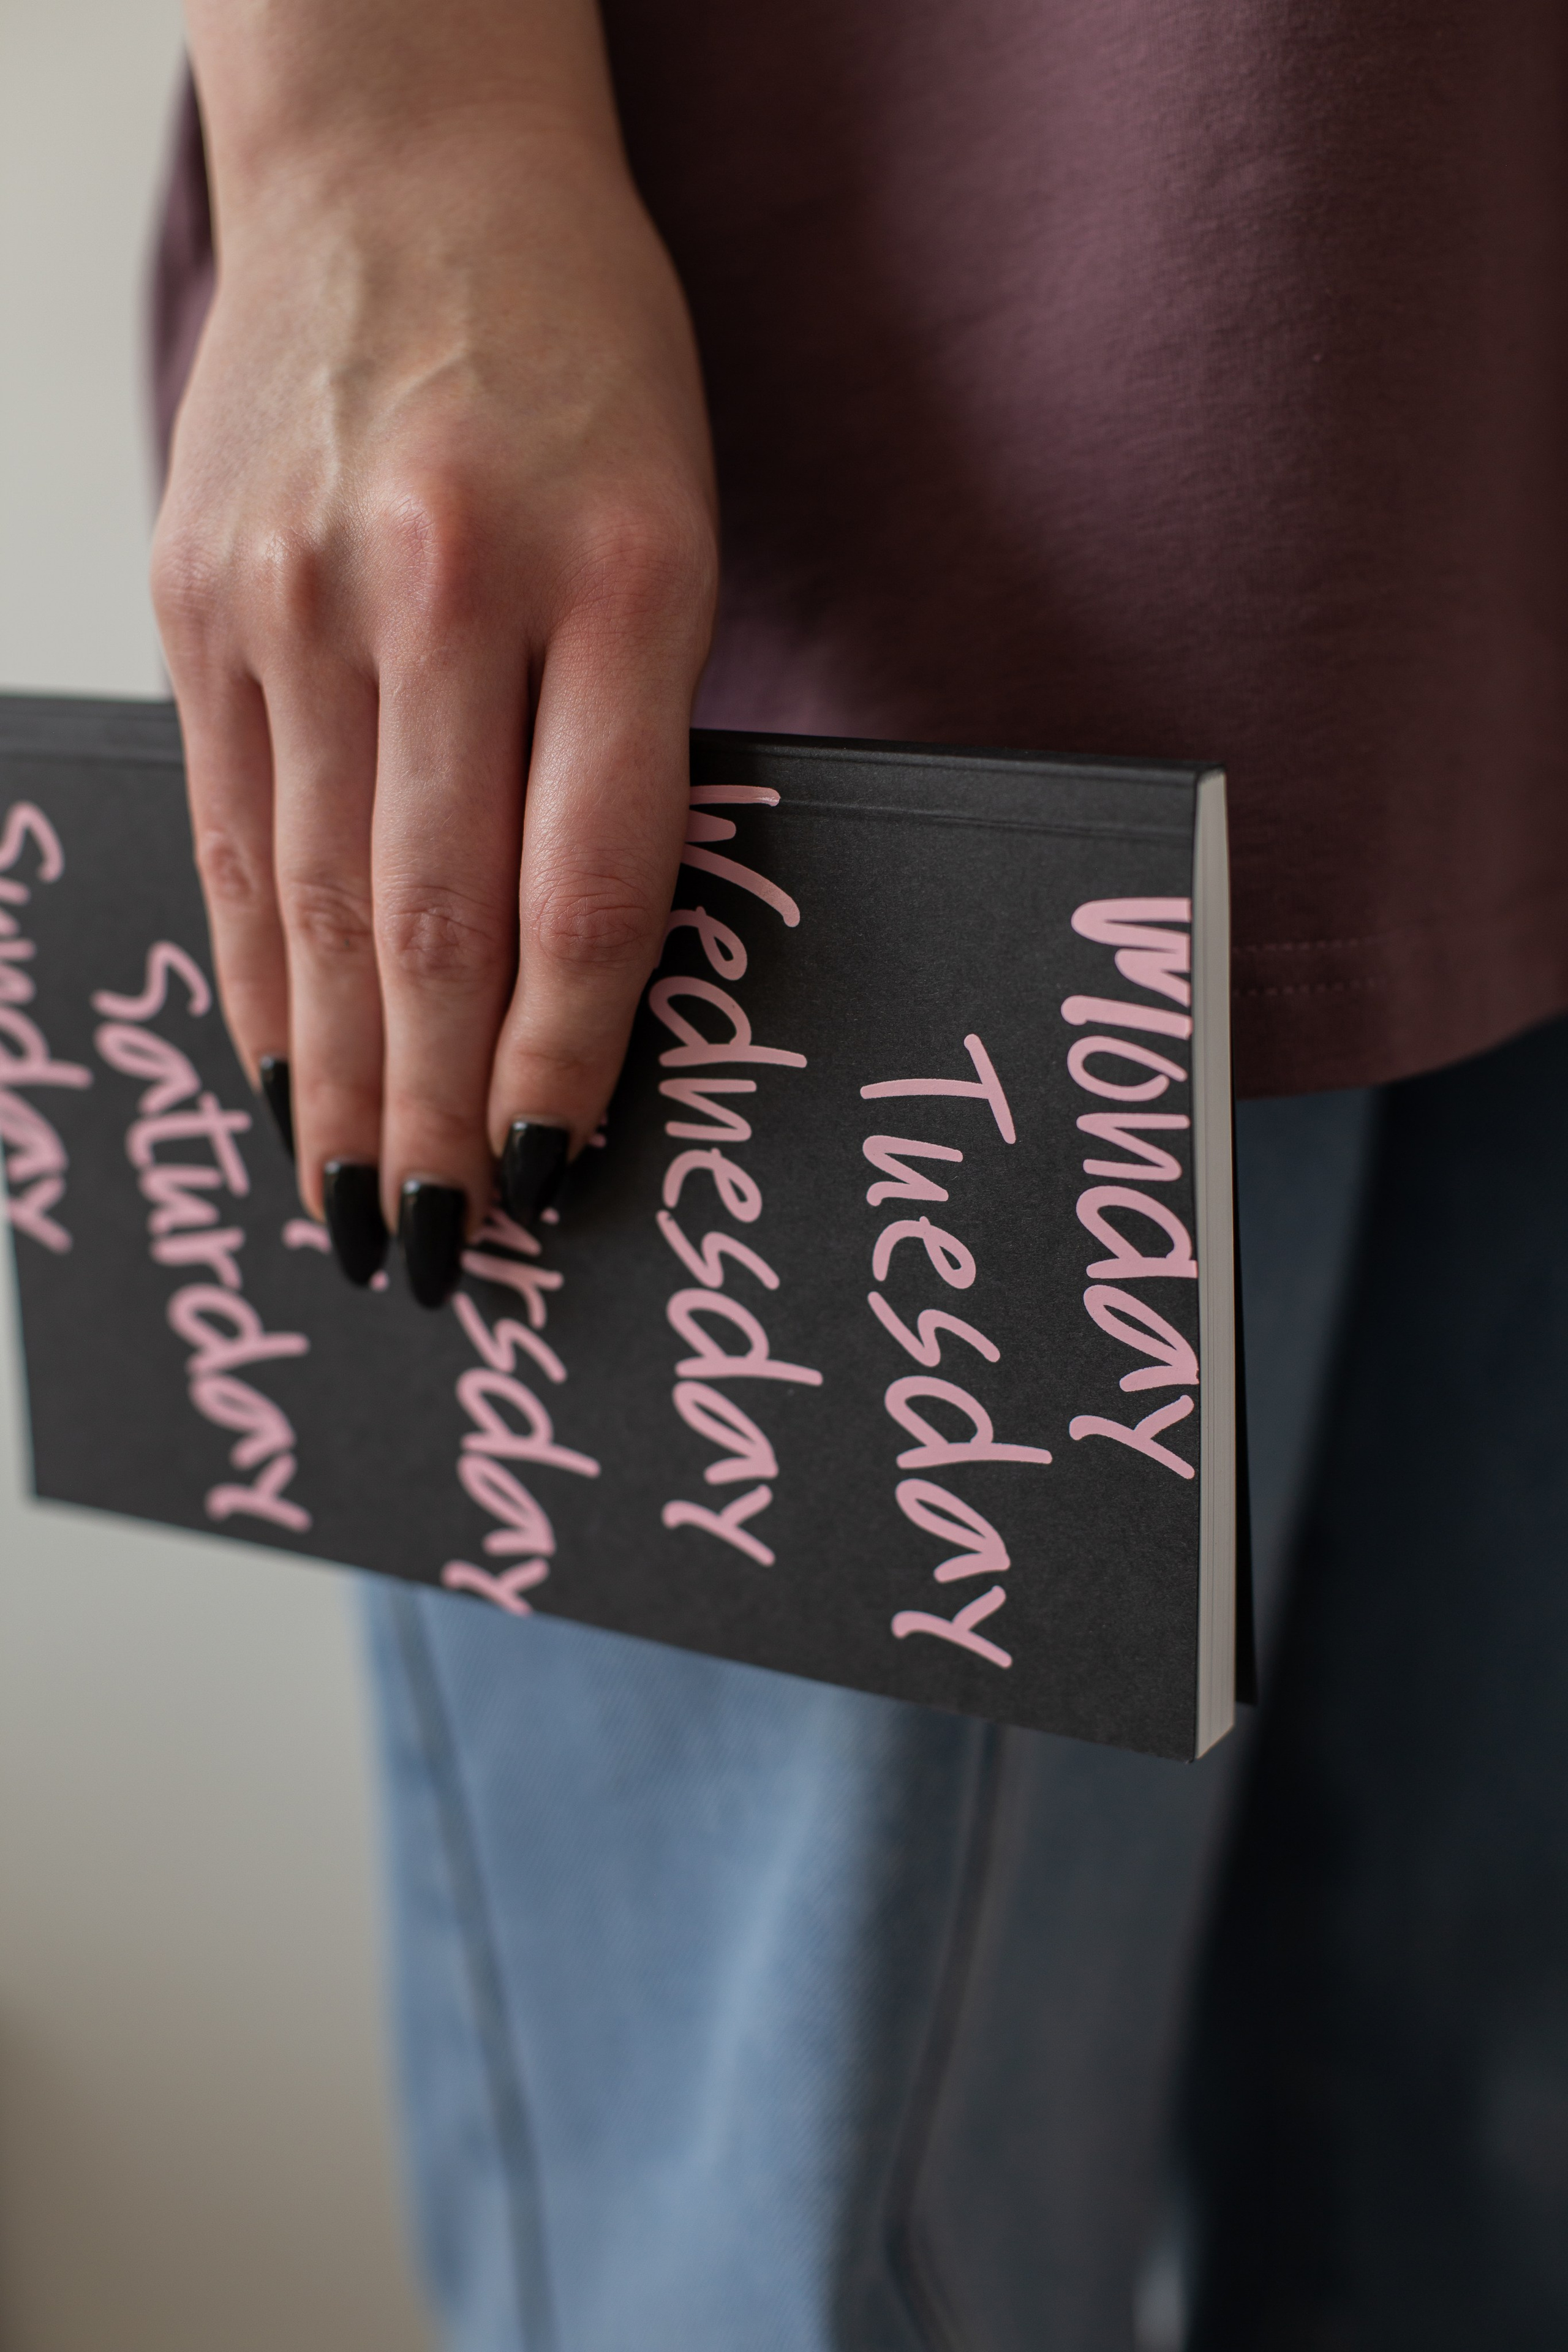 Monday
Tuesday
Wednesday
ursday
Saturday
Sunday